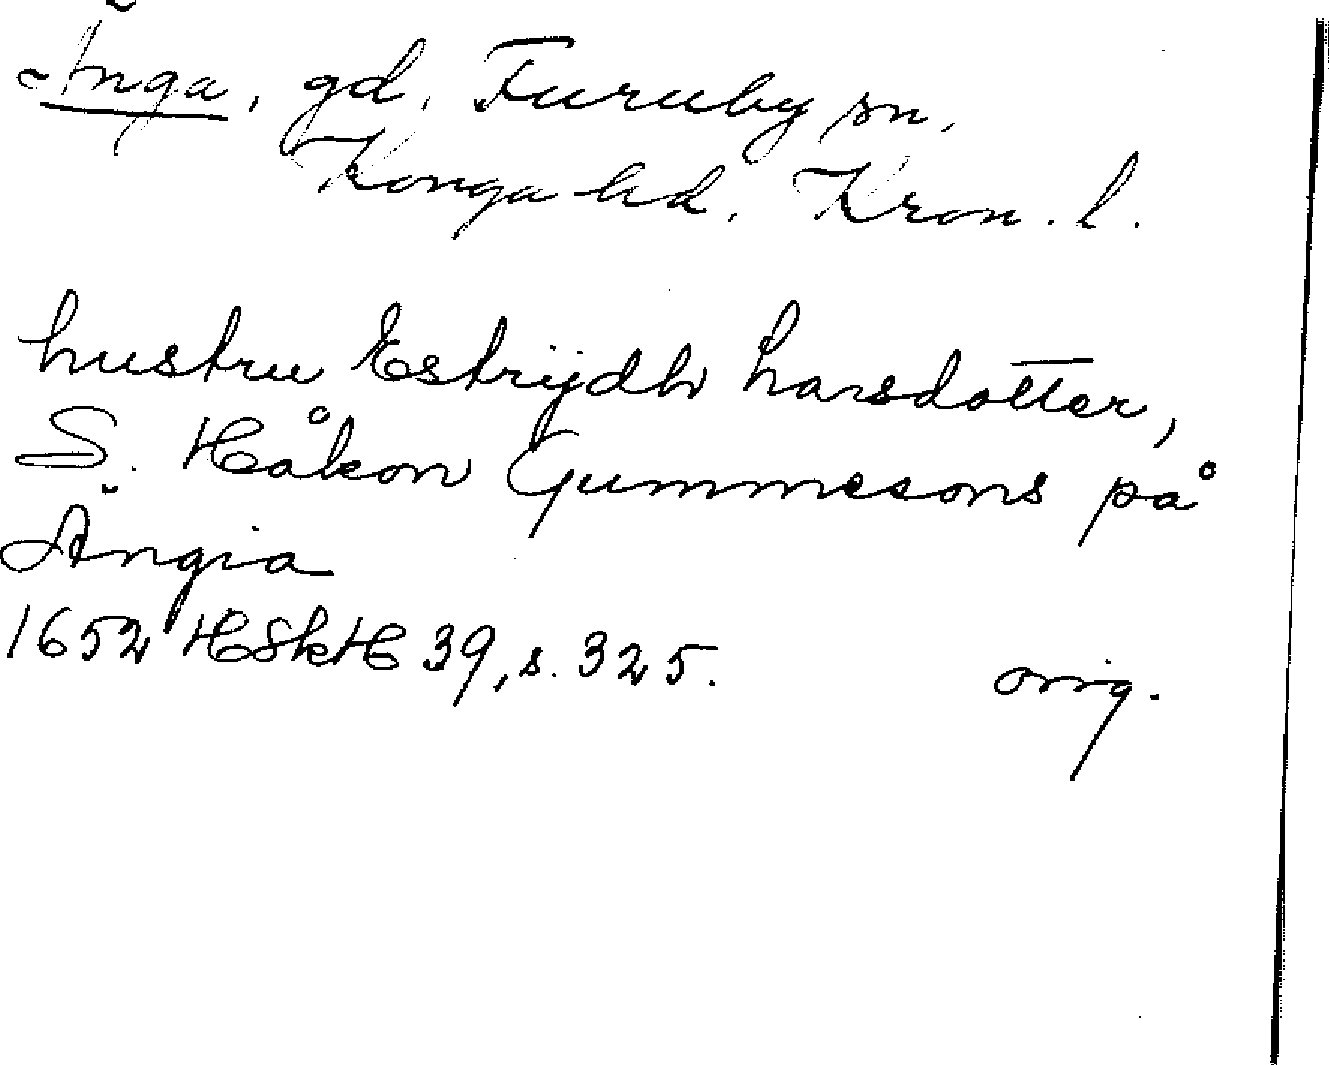 Änga, gd, Furuby sn,
Konga hd, Kron. l.
hustru Estrijdh Larsdotter,
S. Håkon Gummesons på
Ängia
1652 HSkH 39, s. 325. orig.